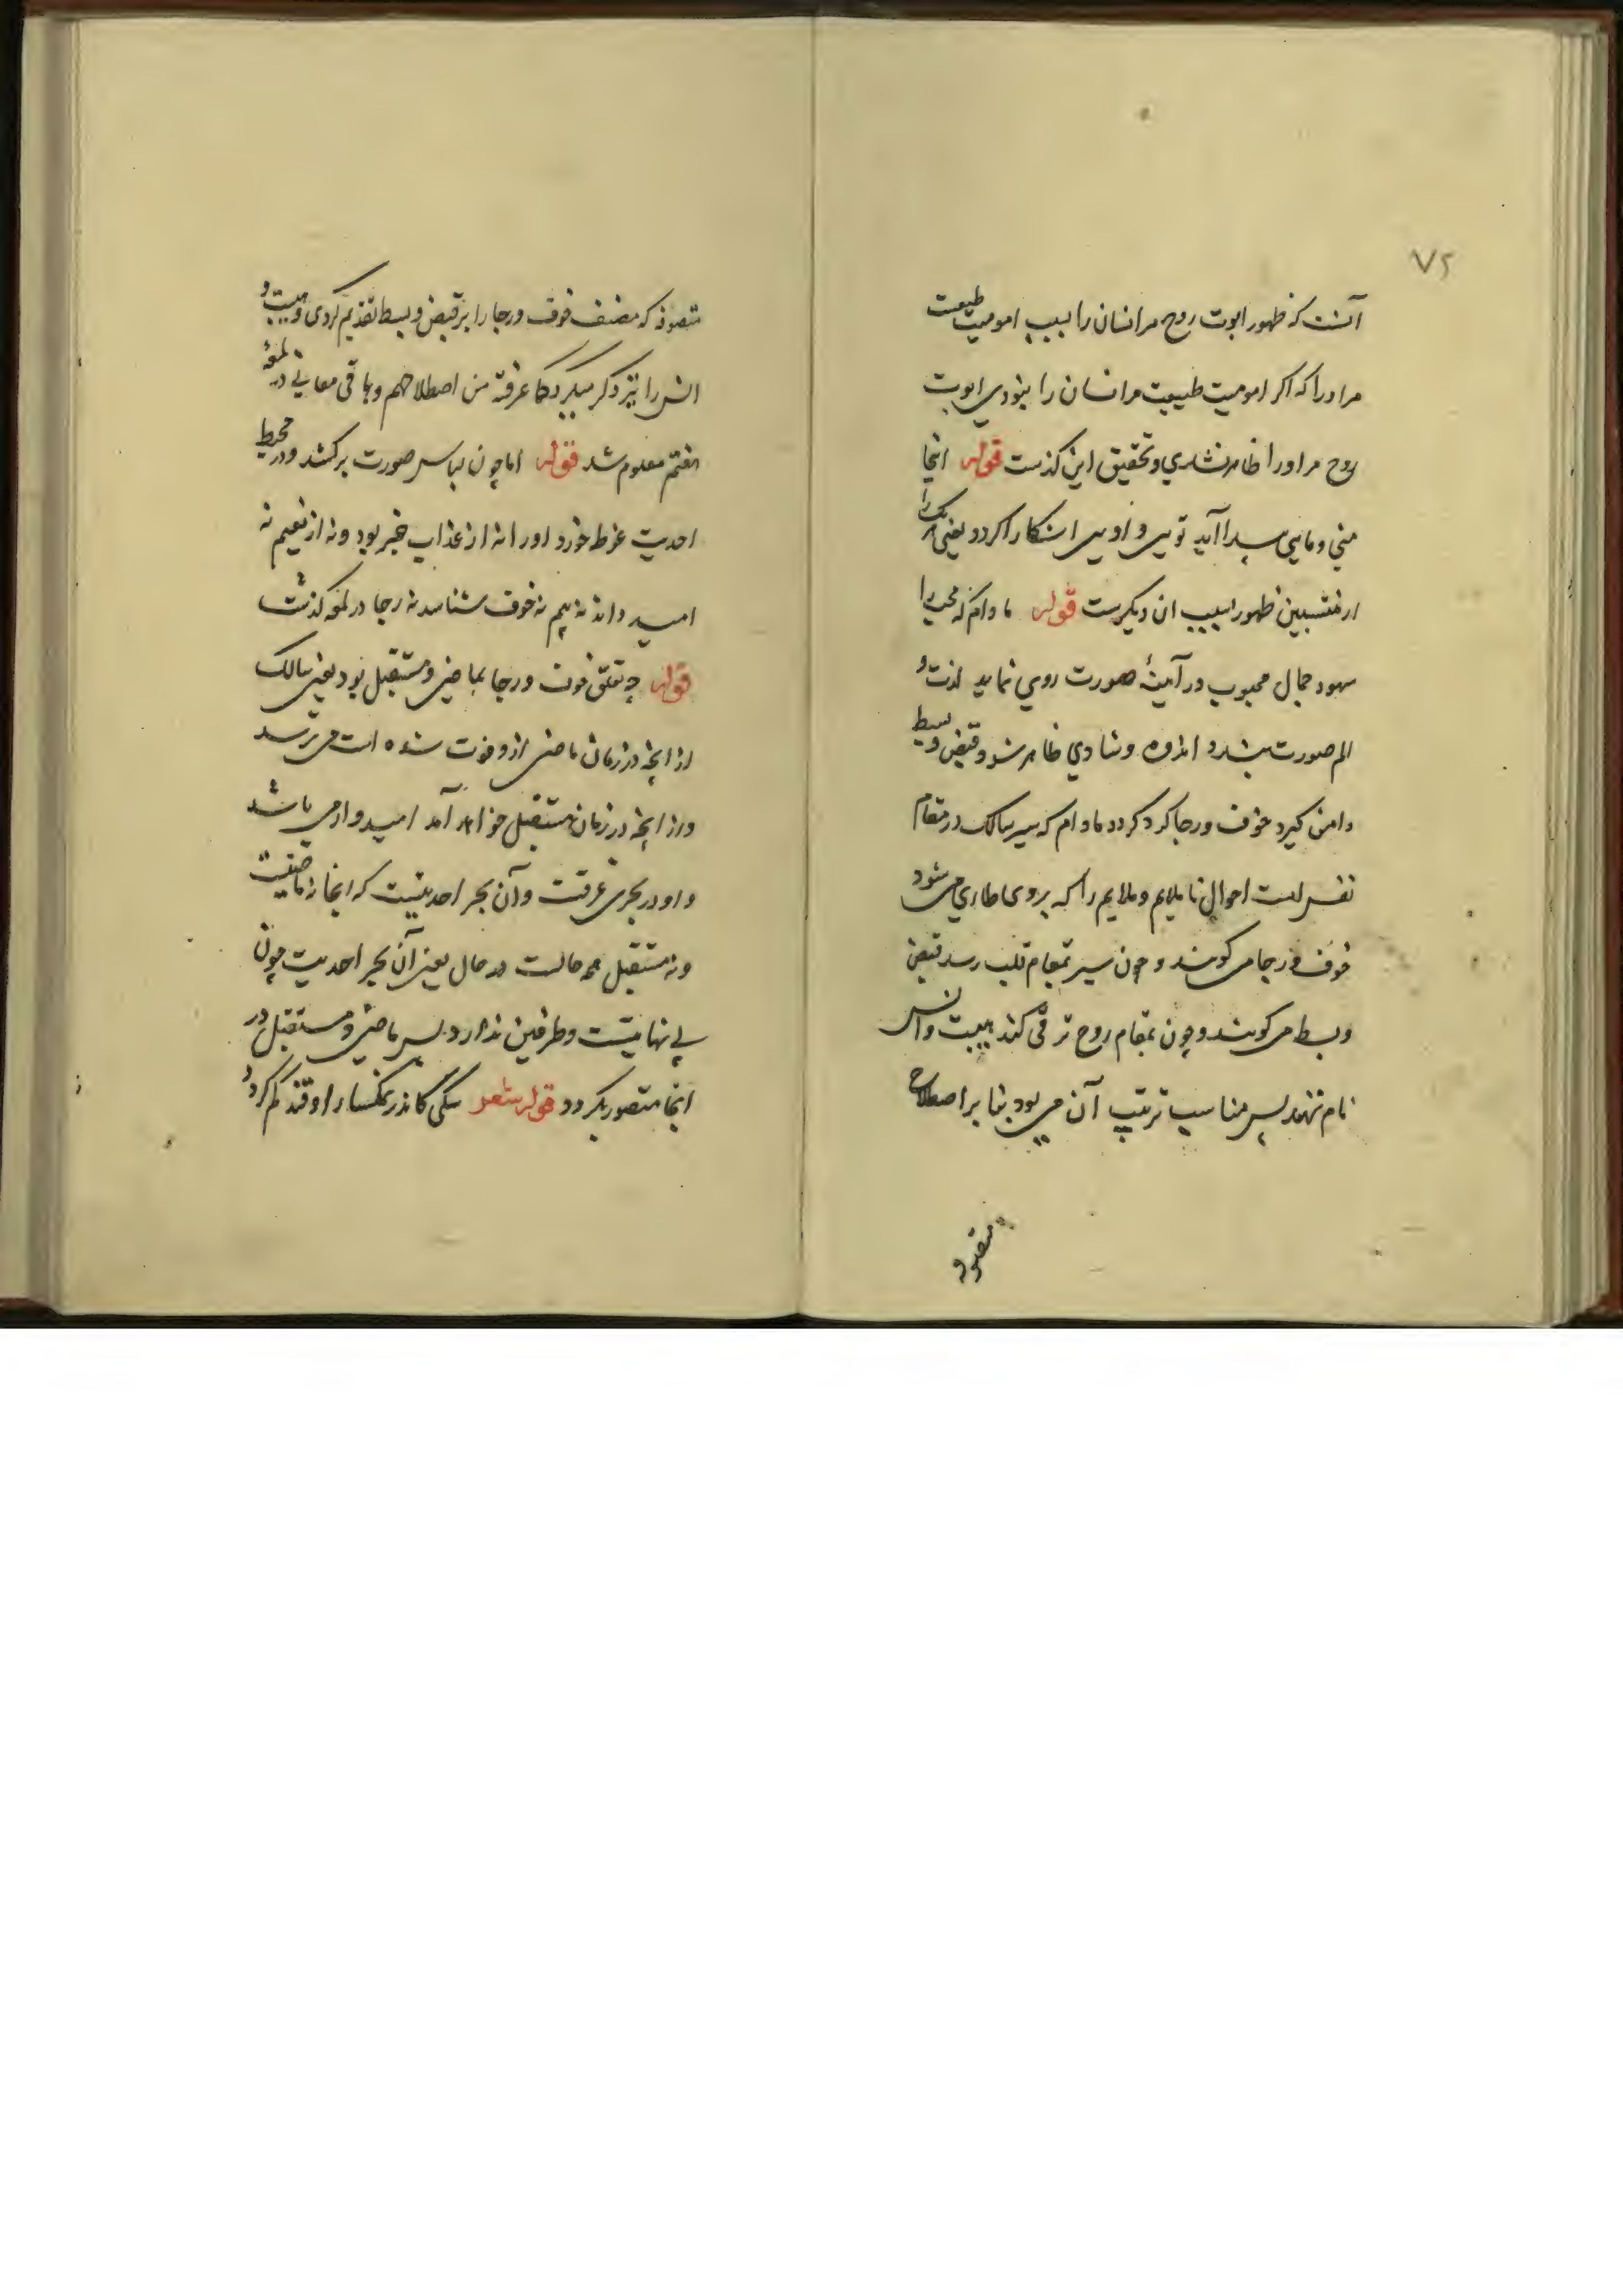 ٧٢
آنست که ظهور ابوت روح مر انسان را بسبب امومیت طبیعت
مر او را که اگر امومیت طبیعت مر انسان را نبودی ابوت
روح مر او را ظاهر نشدی و تحقیق این گذشت قوله اینجا
منی و مایی پیدا آید تویی و اویی اشکارا کردد یعنی هر یک را
از منتسبین ظهور بسبب ان دیگرست قوله مادام که محب را
شهود جمال محبوب در آینهٔ صورت روی نماید لذت و
الم صورت بندد اندوه و شادی ظاهر شود قبض و بسط
دامن گیرد خوف و رجا کرد کردد مادام که سیر سالک در مقام
نفس است احوال نا ملایم و ملایم را که بر وی طاری می شود
خوف و رجا می گویند و چون سیر بمقام قلب رسد قبض
و بسط می گویند و چون بمقام روح ترقی کند هیبت و انس
نام نهند پس مناسب ترتیب آن می بود بنا بر اصطلاح
متصوفه
متصوفه که مصنف خوف و رجا را بر قبض و بسط تقدیم کردی و هیبت و
انس را نیز ذکر میکرد کما عرفته من اصطلاحهم و باقی معانی در لمعهٔ
هفتم معلوم شد قوله اما چون لباس صورت برکشد و در محیط
احدیت غوطه خورد او را نه از عذاب خبر بود و نه از نعیم نه
امید داند نه بیم نه خوف شناسد نه رجا در لمعه گذشت
قوله چه تعلق خوف و رجا بماضی و مستقبل بود یعنی سالک
از آنچه در زمان ماضی ازو فوت شده است می ترسد
و از آنچه در زمان مستقبل خواهد آمد امیدوار می باشد
و او در بحری غرقست و آن بحر احدیتست که اینجا نه ماضیست
و نه مستقبل همه حالست در حال یعنی آن بحر احدیت چون
بی نهایتست و طرفین ندارد پس ماضی و مستقبل در
اینجا متصور نکردد قوله شعر سگی کاندر نمکسار اوفتد گم گردد